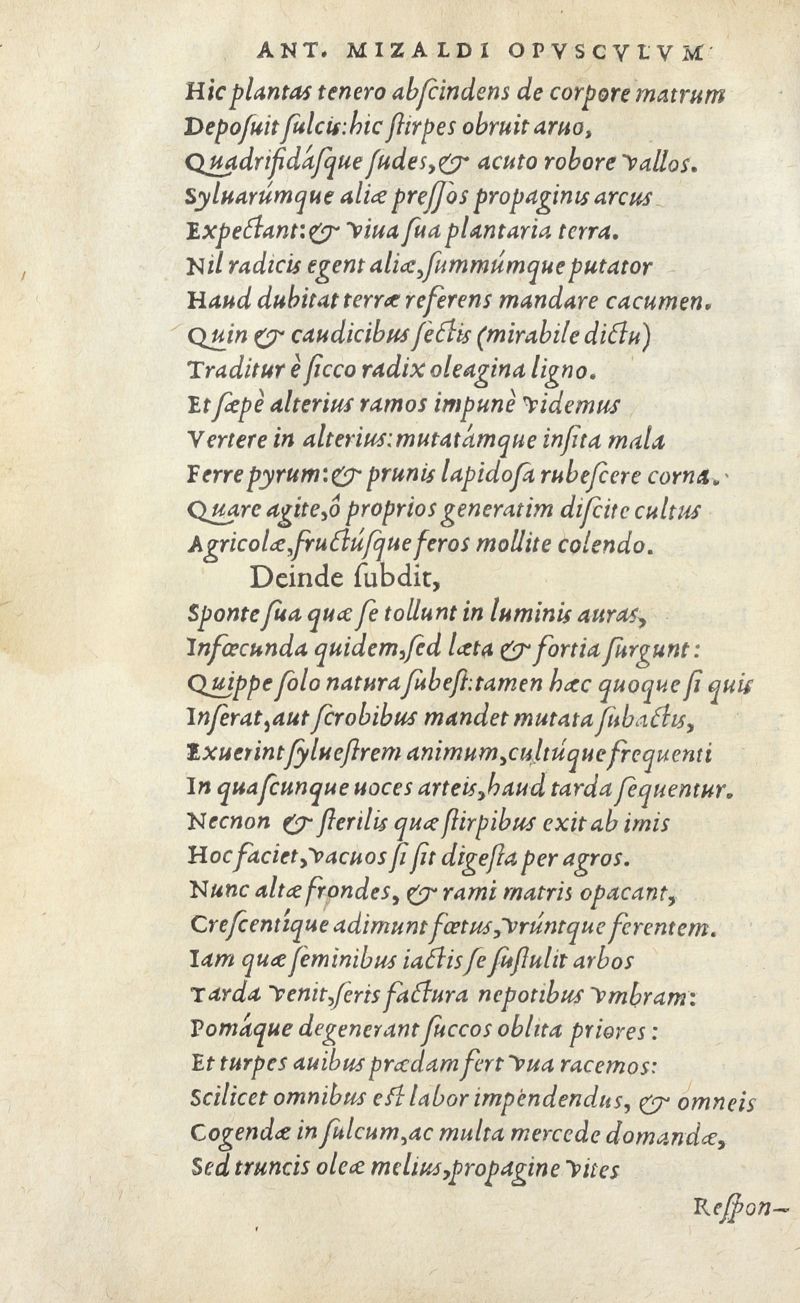 ANT. MIZALDI OPVSCVLVM
Hic plantas tenero abſcindens de corpore matrum
Depoſuit ſulcis: hic ſtirpes obruit aruo,
Quadrifidáſque ſudes, & acuto robore vallos.
Syluarúmque aliæ preſſos propaginis arcus
Expectant: & viua ſua plantaria terra.
Nil radicis egent aliæ, ſummúmque putator
Haud dubitat terræ referens mandare cacumen.
Quin & caudicibus ſectis (mirabile dictu)
Traditur è ſicco radix oleagina ligno.
Et ſæpè alterius ramos impunè videmus
Vertere in alterius: mutatámque inſita mala
Ferre pyrum: & prunis lapidoſa rubeſcere corna.
Quare agite, ô proprios generatim diſcite cultus
Agricolæ, fructúſque feros mollite colendo.
Deinde ſubdit,
Sponte ſua quæ ſe tollunt in luminis auras,
Infœcunda quidem, ſed læta & fortia ſurgunt:
Quippe ſolo natura ſubeſt: tamen hæc quoque ſi quis
Inſerat, aut ſcrobibus mandet mutata ſubactis,
Exuerint ſylueſtrem animum, cultúque frequenti
In quaſcunque uoces arteis, haud tarda ſequentur.
Necnon & ſterilis quæ ſtirpibus exit ab imis
Hoc faciet, vacuos ſi ſit digeſta per agros.
Nunc altæ frondes, & rami matris opacant,
Creſcentíque adimunt fœtus, vrúntque ferentem.
Iam quæ ſeminibus iactis ſe ſuſtulit arbos
Tarda venit, ſeris factura nepotibus vmbram:
Pomáque degenerant ſuccos oblita priores:
Et turpes auibus prædam fert vua racemos:
Scilicet omnibus eſt labor impendendus, & omneis
Cogendæ in ſulcum, ac multa mercede domandæ,
Sed truncis oleæ melius, propagine vites
Reſpon-